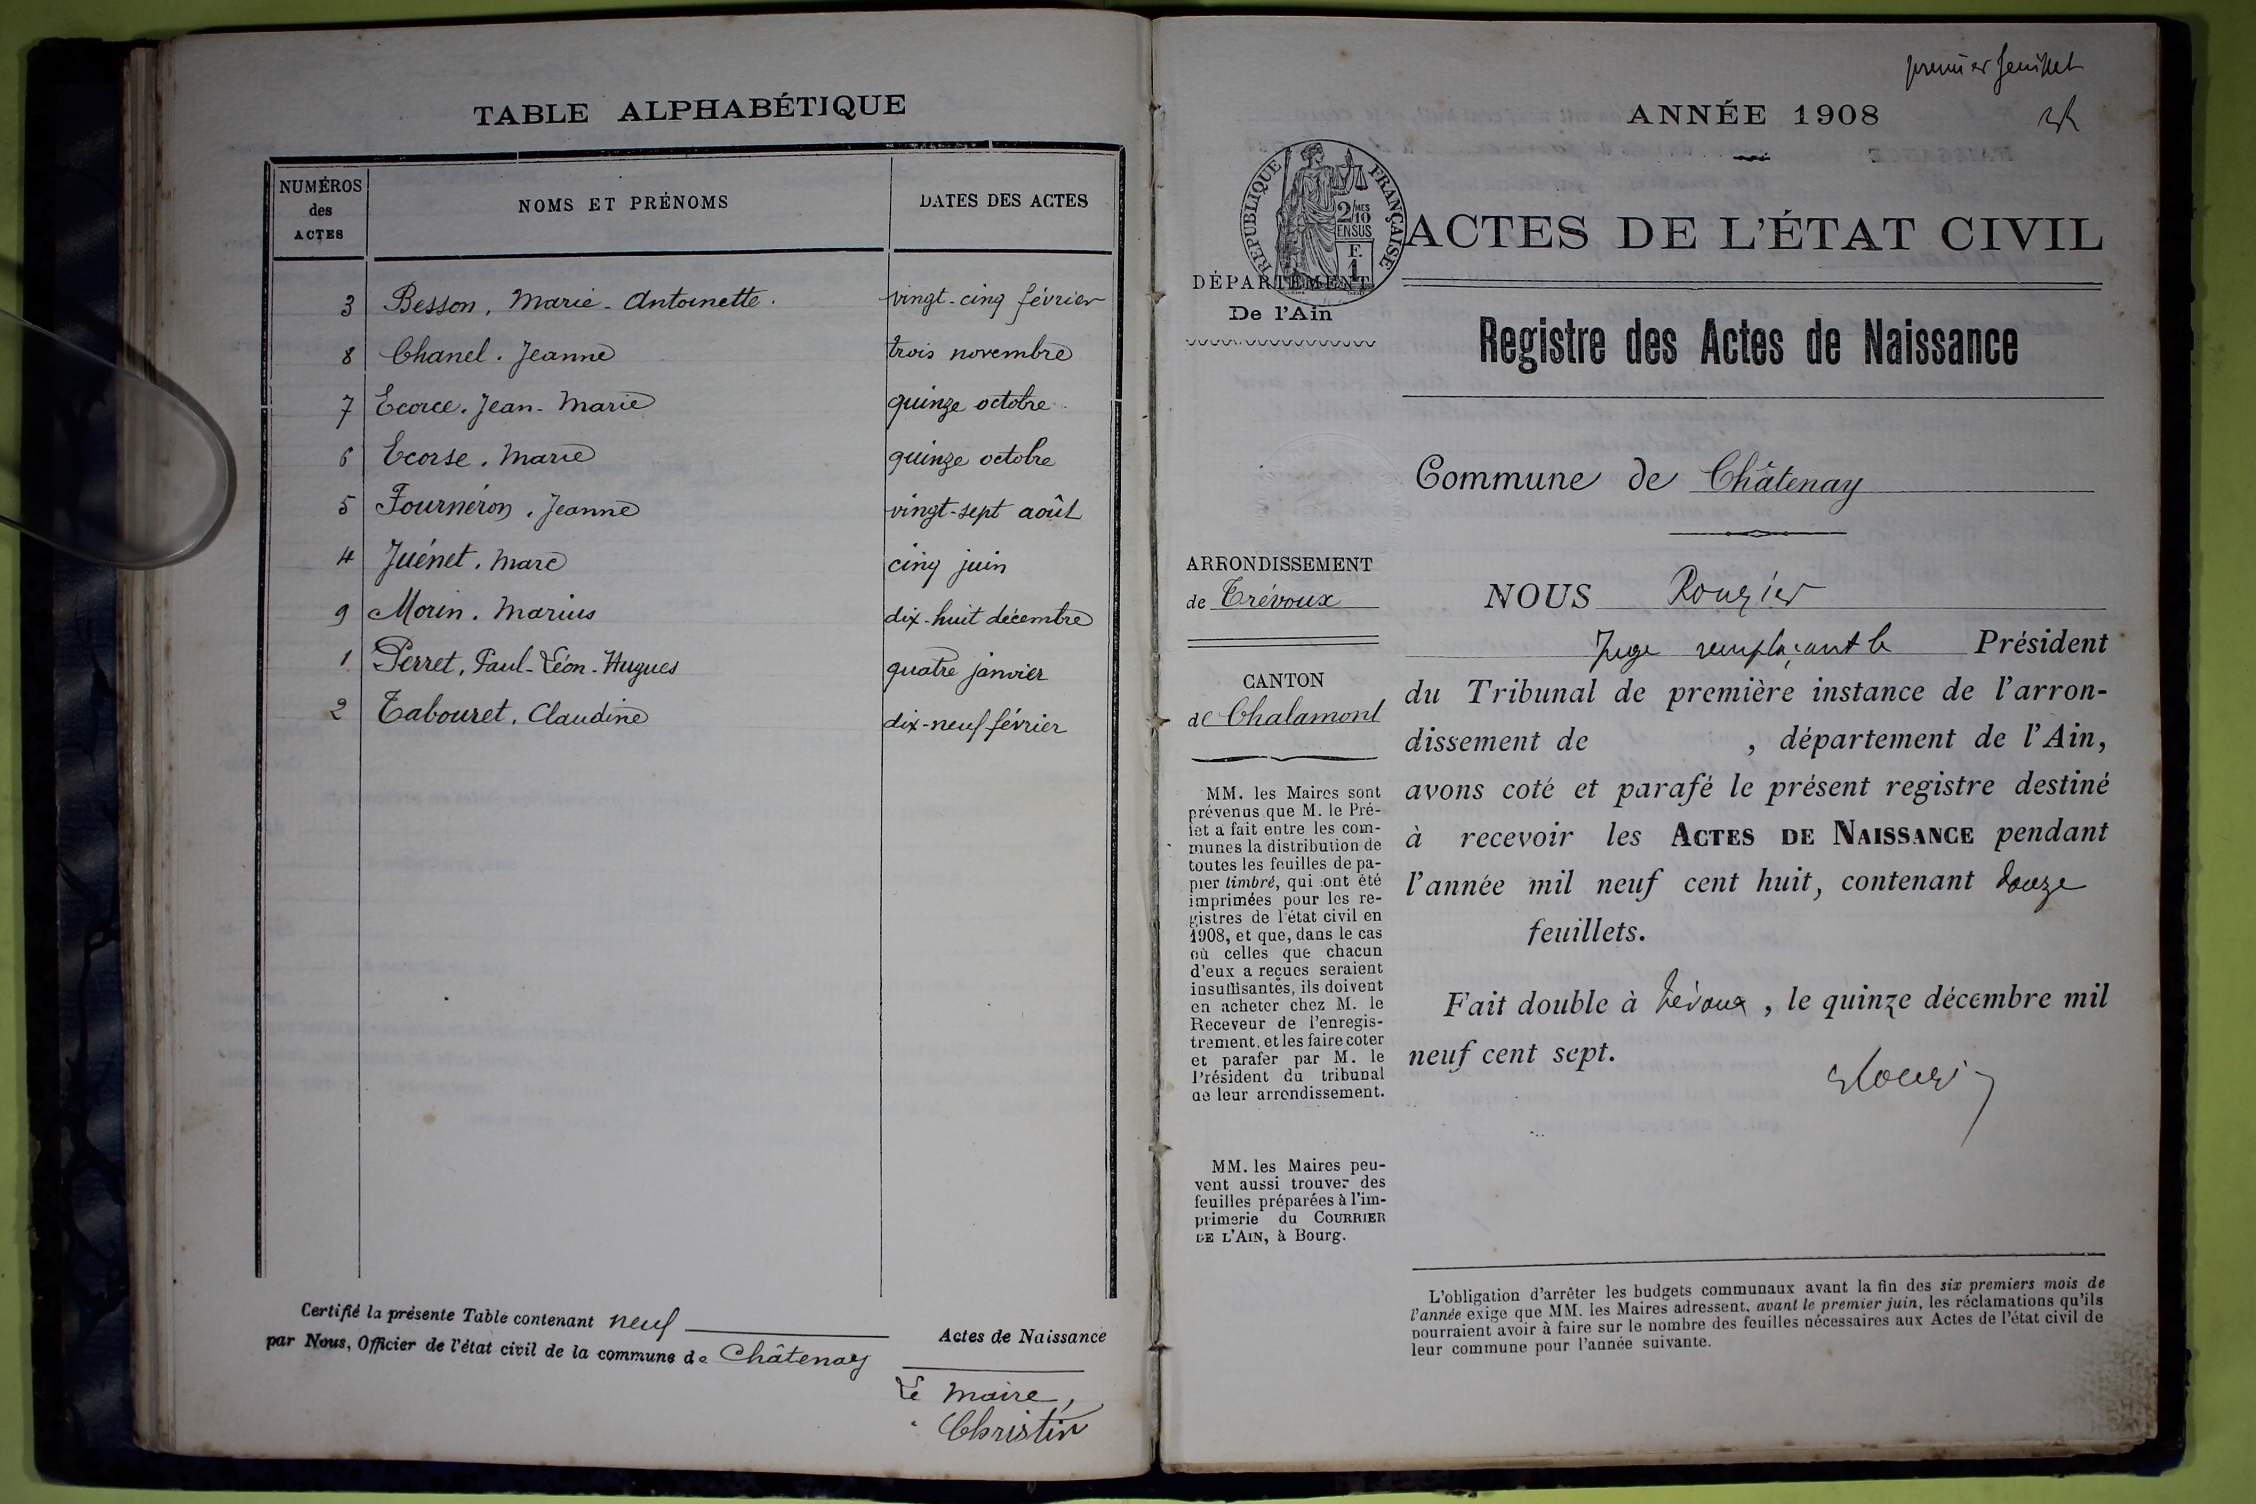 TABLE ALPHABÉTIQUE
NUMÉROS
des
ACTES
NOMS ET PRÉNOMS
DATES DES ACTES
3 Besson, Marie-Antoinette. vingt-cinq février
8 Chanel. Jeanne trois novembre
7 Ecorce. Jean-Marie quinze octobre
6 Ecorse. Marie quinze octobre
5 Fournéron. Jeanne vingt-sept août
4 Juénet. Marc cinq juin
9 Morin. Marius dix-huit décembre
1 Perret, Paul-Léon-Hugues quatre janvier
2 Tabouret. Claudine dix-neuf février
Certifié la présente Table contenant neuf Actes de Naissance
par Nous, Officier de l'état civil de la commune de Châtenay
Le Maire,
Christin
premier feuillet
ANNÉE 1908
RÉPUBLIQUE FRANÇAISE
2/10 MES
EN SUS
F.
1
ACTES DE L'ÉTAT CIVIL
DÉPARTEMENT
De l'Ain
Registre des Actes de Naissance
Commune de Châtenay
ARRONDISSEMENT
de Trévoux
CANTON
de Chalamont
MM. les Maires sont
prévenus que M. le Pré-
fet a fait entre les com-
munes la distribution de
toutes les feuilles de pa-
pier timbré, qui ont été
imprimées pour les re-
gistres de l'état civil en
1908, et que, dans le cas
où celles que chacun
d'eux a reçues seraient
insuffisantes, ils doivent
en acheter chez M. le
Receveur de l'enregis-
trement, et les faire coter
et parafer par M. le
Président du tribunal
de leur arrondissement.
MM. les Maires peu-
vent aussi trouver des
feuilles préparées à l'im-
primerie du COURRIER
DE L'AIN, à Bourg.
NOUS Rougier
Juge remplaçant le Président
du Tribunal de première instance de l'arron-
dissement de , département de l'Ain,
avons coté et parafé le présent registre destiné
à recevoir les ACTES DE NAISSANCE pendant
l'année mil neuf cent huit, contenant douze
feuillets.
Fait double à Trévoux, le quinze décembre mil
neuf cent sept.
L'obligation d'arrêter les budgets communaux avant la fin des six premiers mois de
l'année exige que MM. les Maires adressent, avant le premier juin, les réclamations qu'ils
pourraient avoir à faire sur le nombre des feuilles nécessaires aux Actes de l'état civil de
leur commune pour l'année suivante.